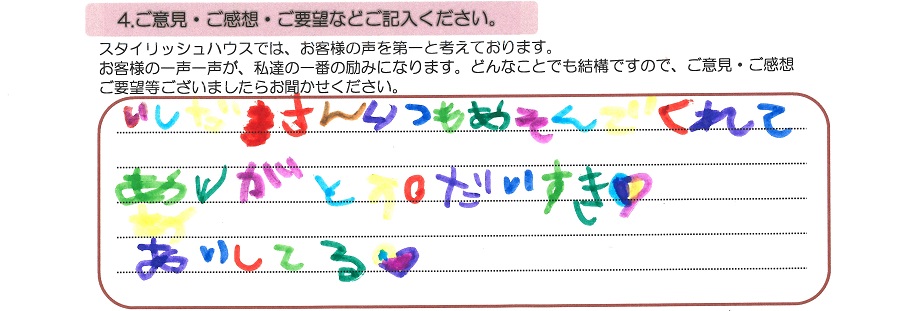 4.ご意見・ご感想・ご要望などご記入ください。
スタイリッシュハウスでは、お客様の声を第一と考えております。
お客様の一声一声が、私達の一番の励みになります。どんなことでも結構ですので、ご意見・ご感想
ご要望等ございましたらお聞かせください。
いしだまさんいつもあそんでくれて
ありがとう。だいすき
あいしてる